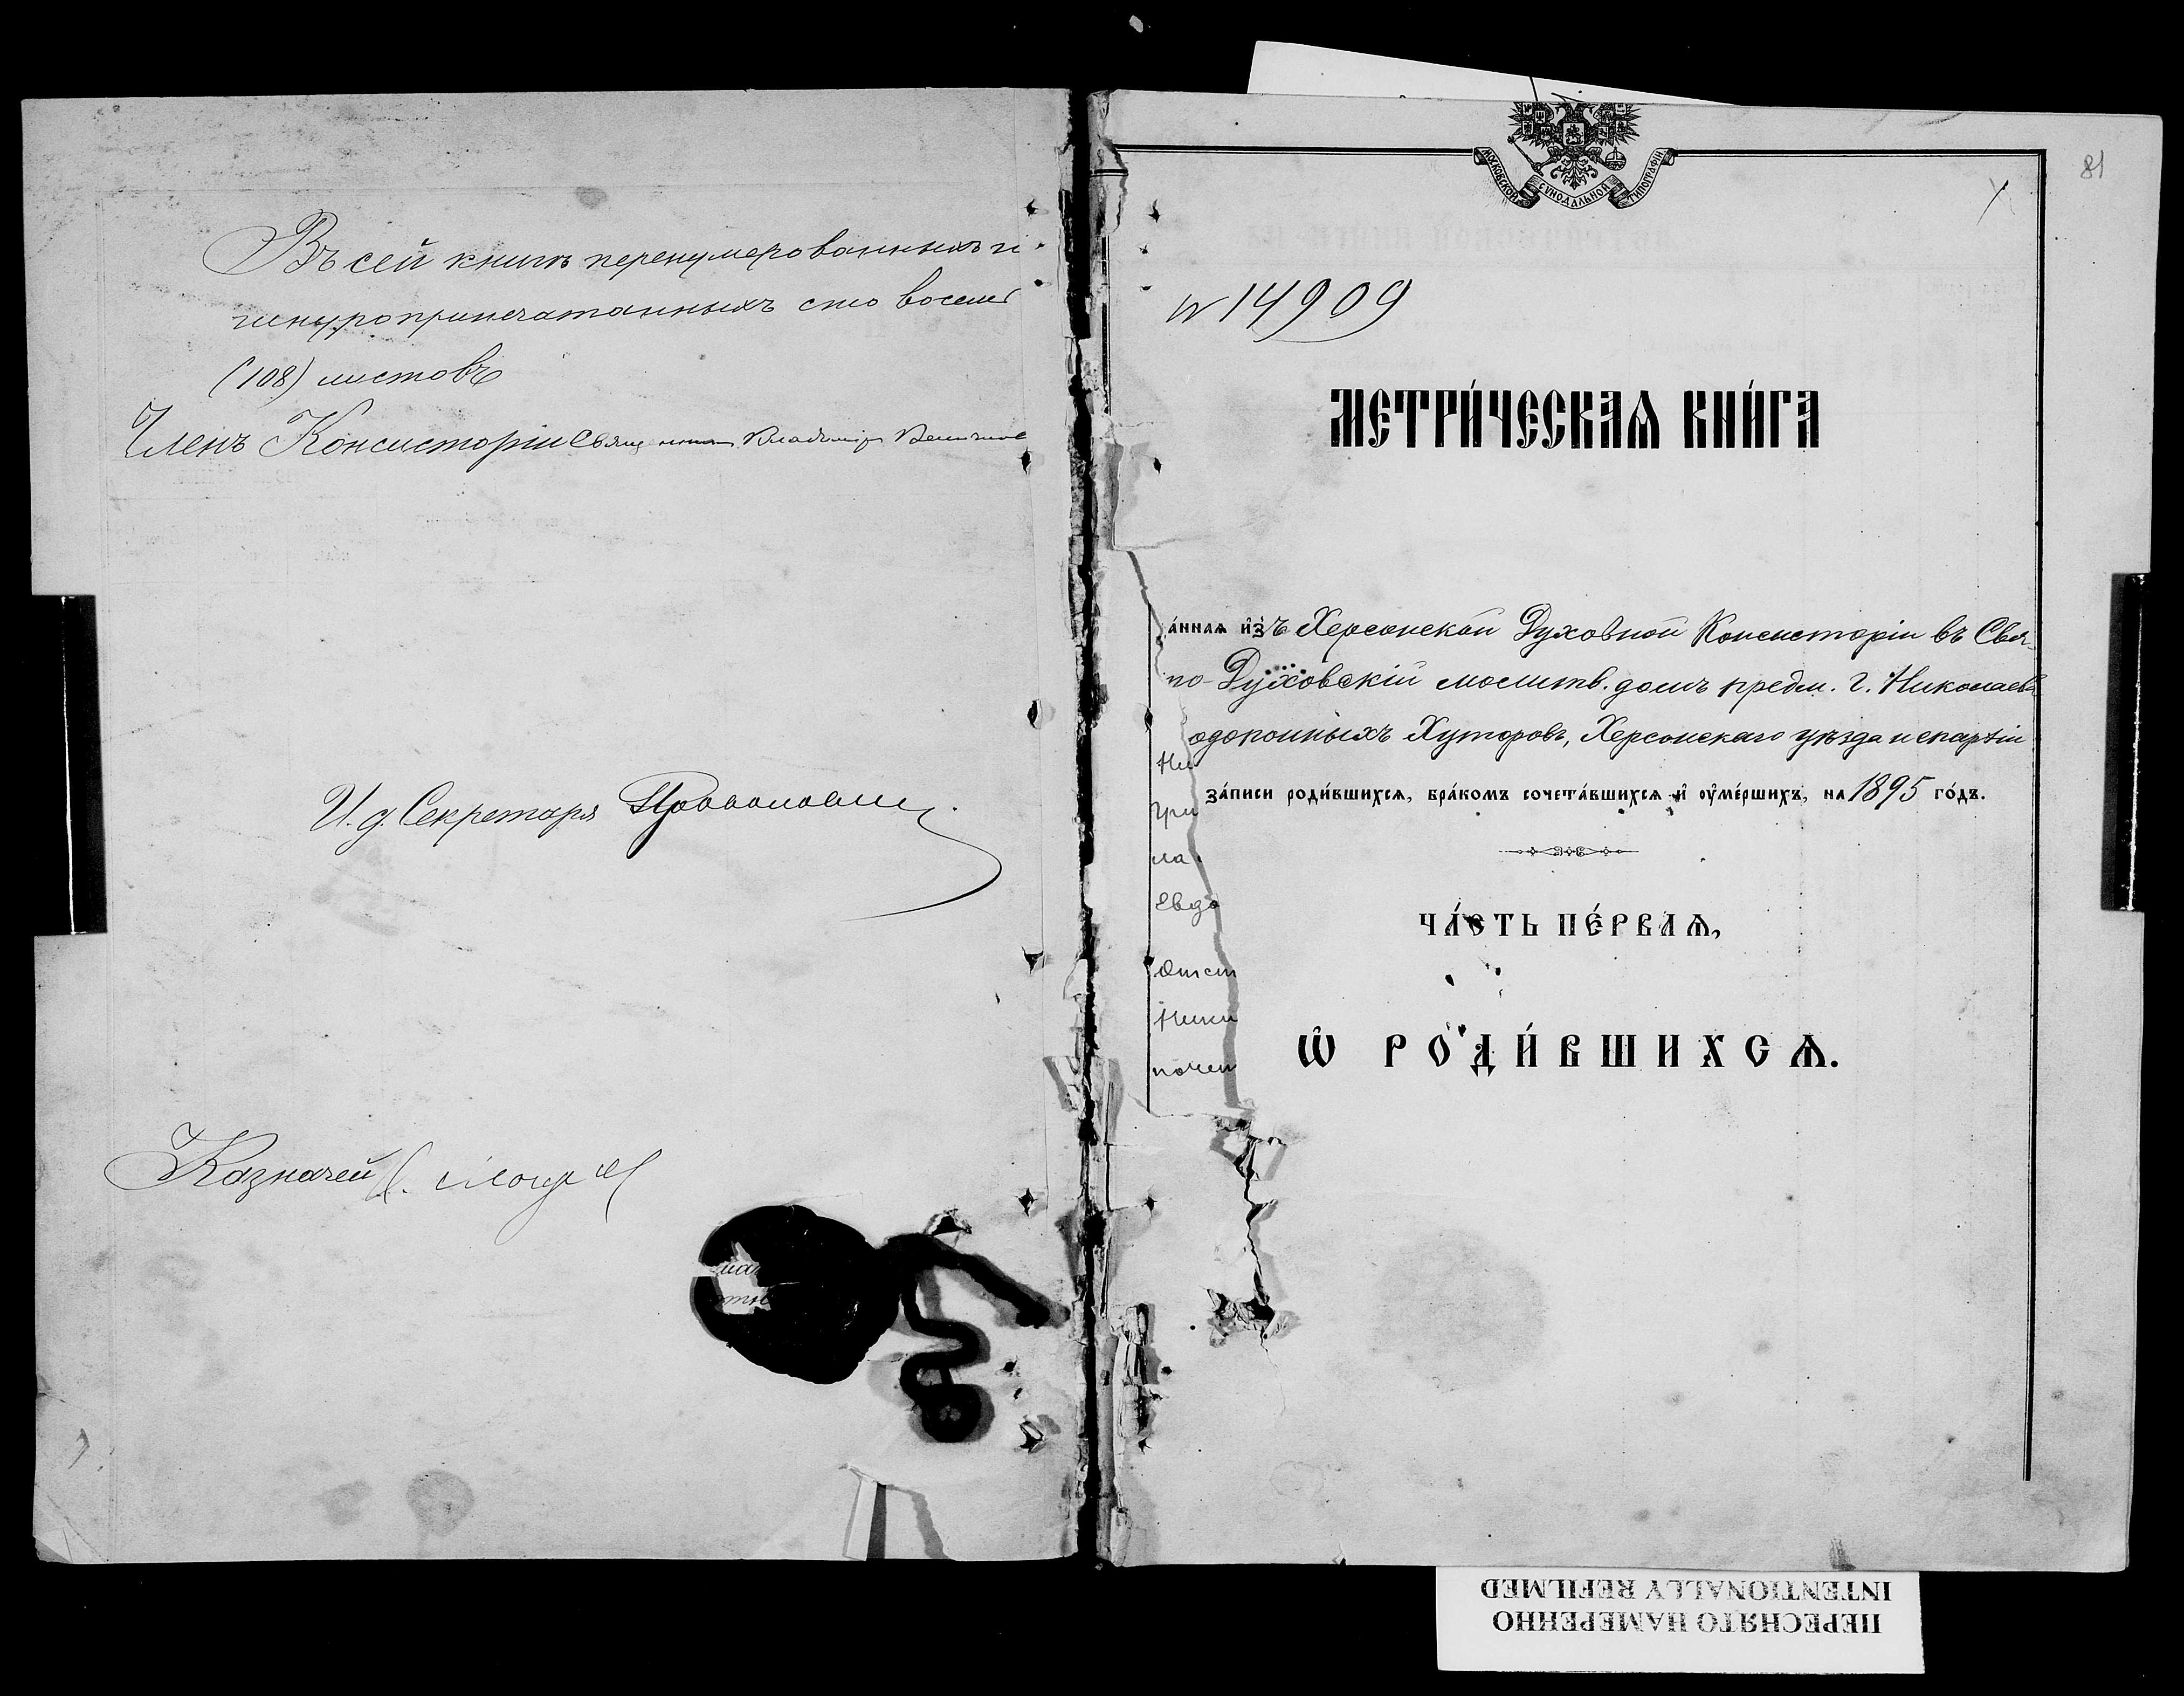 Въ сей книгѣ перенумерованныхъ и
шнуроприпечатанныхъ сто восемь
(108) листовъ
Членъ Консисторіи Священникъ Владиміръ
И. д. Секретаря
Казначей
МОСКОВСКОЙ СѴНОДАЛЬНОЙ ТИПОГРАФІИ
81
N 14909
МЕТРИ́ЧЕСКАѦ КНИ́ГА
а́ннаѧ и҆зъ Херсонской Духовной Консисторіи въ Свя-
то-Духовскій молитв. домъ предм. г. Николаева
одопойныхъ Хуторовъ, Херсонскаго уѣзда и епархіи
за́писи роди́вшихсѧ, бра́комъ сочета́вшихсѧ и҆ ᲂу҆ме́ршихъ, на 1895 го́дъ.
Ни
гри
ла
Евдо
Отст
Ники
почет
ЧА́СТЬ ПЕ́РВАѦ,
Ѡ҆ РОДИ́ВШИХСѦ.
ПЕРЕСНЯТО НАМЕРЕННО
INTENTIONALLY REFILMED